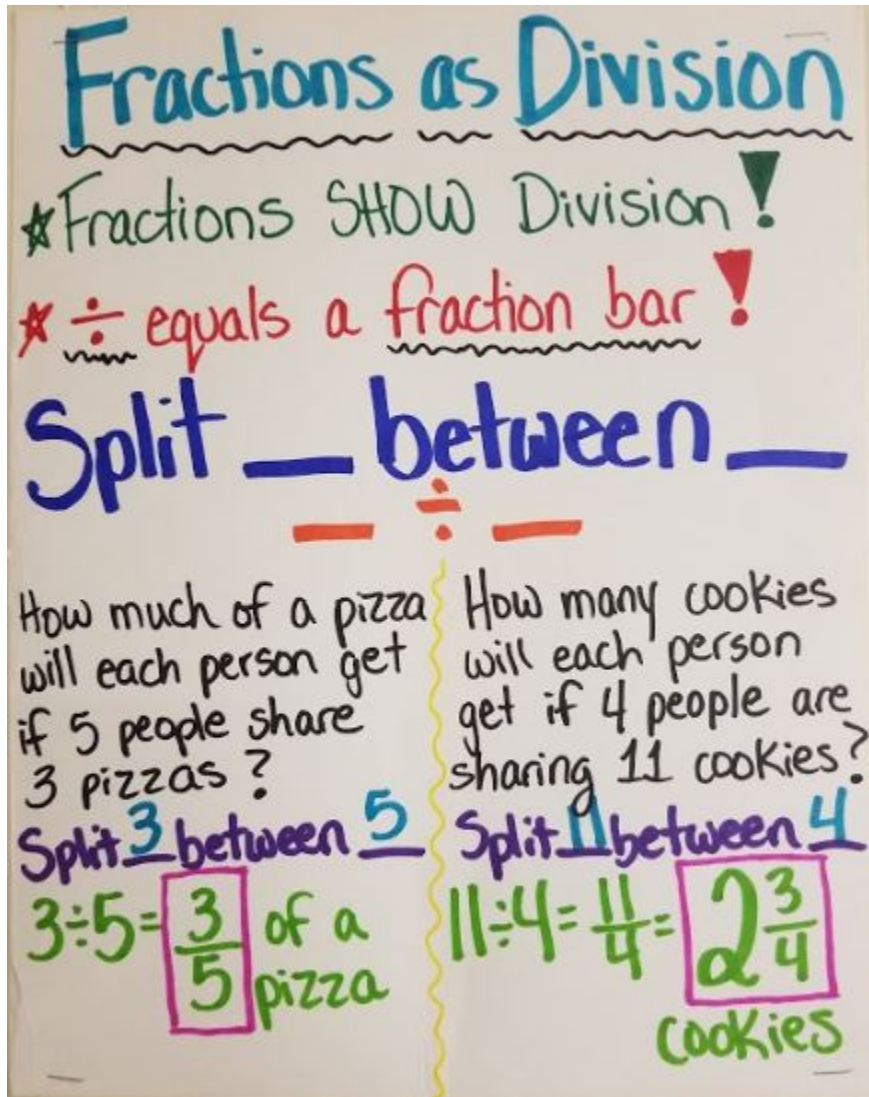 Fractions as Division
☆Fractions SHOW Division!
☆ ÷ equals a fraction bar!
Split _ between _
_ ÷ _
How much of a pizza
will each person get
if 5 people share
3 pizzas?
Split 3 between 5
3÷5= 3/5 of a
pizza
How many cookies
will each person
get if 4 people are
sharing 11 cookies?
Split 11 between 4
11÷4= 11/4 = 2 3/4
cookies